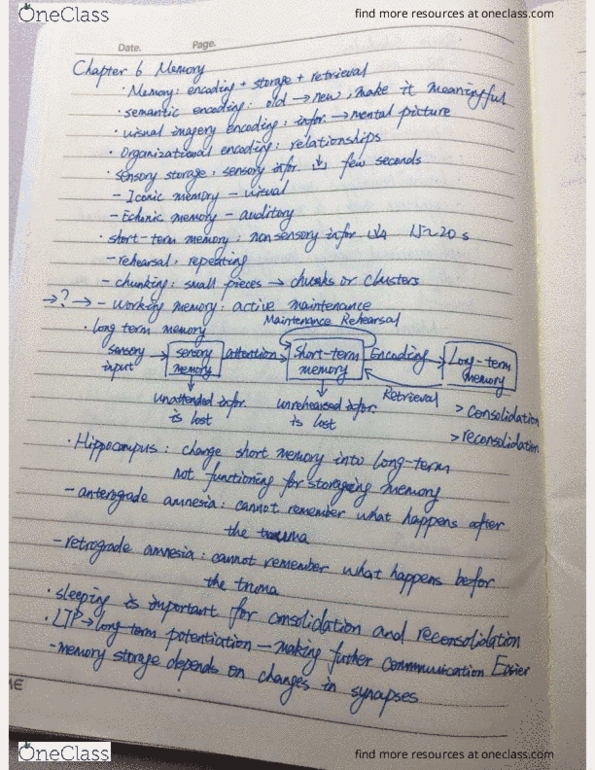 OneClass
find more resources at oneclass.com
Date. Page.
Chapter 6 Memory
· Memory: encoding + storage + retrieval
· semantic encoding: old → new, make it meaningful
· visual imagery encoding: infor. → mental picture
· Organizational encoding: relationships
· sensory storage: sensory infor. few seconds
- Iconic memory - visual
- Echonic memory - auditory
· short-term memory: nonsensory infor 15~20 s
- rehearsal: repeating
- chunking: small pieces → chunks or clusters
→? → - working memory: active maintenance
Maintenance Rehearsal
· Long term memory
sensory input → sensory memory attention → short-term memory Encoding → Long-term memory
Retrieval
unattended infor. is lost
unrehearsed infor. is lost
> consolidation
> reconsolidation
· Hippocampus: change short memory into long-term
not functioning for storageing memory
- anterograde amnesia: cannot remember what happens after
the trauma
- retrograde amnesia: cannot remember what happens befor
the truma
· sleeping is important for consolidation and reconsolidation
· LTP → long term potentiation - making futher communication Easier
- memory storage depends on changes in synapses
OneClass
find more resources at oneclass.com